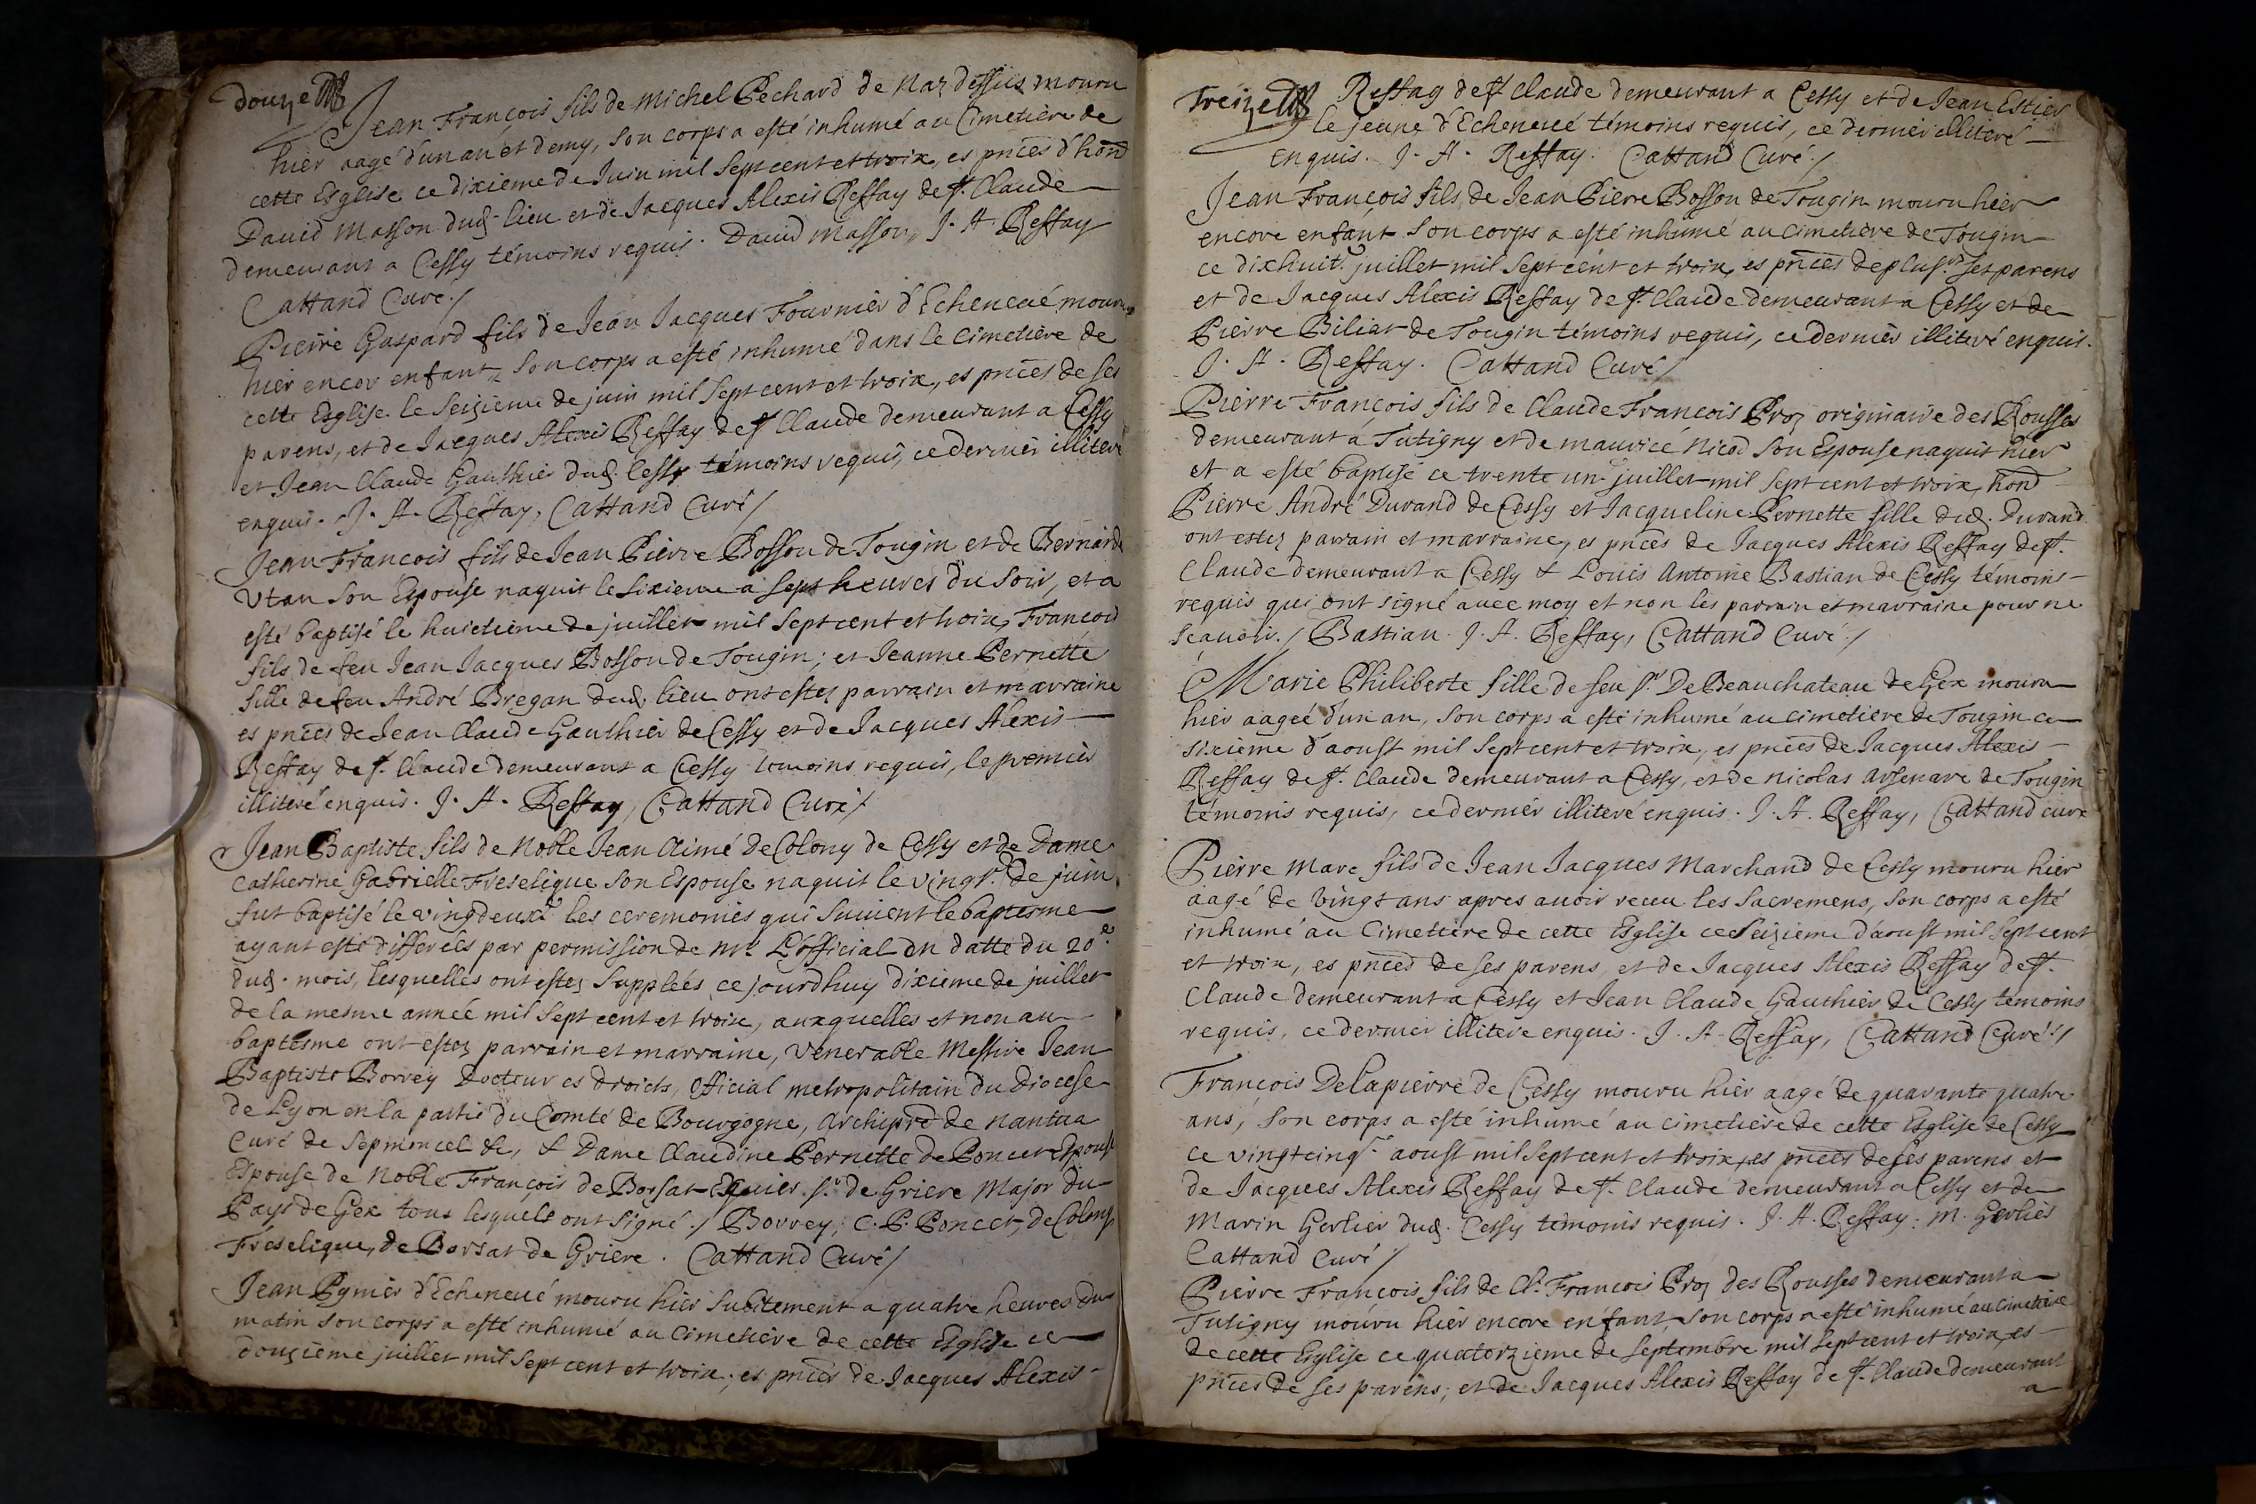 douze
Jean François fils de Michel Pechard de Naz dessus mouru
hier aagé d'un an et demy, son corps a esté inhumé au Cimetiere de
cette Esglise ce dixieme de Juin mil sept cent et troix, es pnces d'hond
David Masson dud. lieu et de Jacques Alexis Reffay de st. Claude
demeurant a Cessy témoins requis. David Masson, J. A. Reffay
Cattand Curé./
Pierre Gaspard fils de Jean Jacques Fournier d'Echenevé mouru
hier encor enfant, son corps a esté inhumé dans le Cimetiere de
cette Esglise le seizieme de juin mil sept cent et troix, es pnces de ses
parens, et de Jacques Alexis Reffay de st Claude demeurant a Cessy
et Jean Claude Gauthier dud. Cessy témoins requis, ce dernier illiteré
enquis. J. A. Reffay, Cattand Curé/
Jean Francois fils de Jean Pierre Bosson de Tougin et de Bernarde
Utan son Espouse naquit le sixieme a sept heures du soir, et a
esté baptisé le huictieme de juillet mil sept cent et troix, Francois
fils de feu Jean Jacques Bosson de Tougin; et Jeanne Pernette
fille de feu André Bregan dud. lieu ont estez parrain et marraine
es pnces de Jean Claude Gauthier de Cessy et de Jacques Alexis
Reffay de st. Claude demeurant a Cessy témoins requis, le premier
illiteré enquis. J. A. Reffay, Cattand Curé/
Jean Baptiste fils de Noble Jean Aimé de Colony de Cessy et de Dame
Catherine Gabrielle Freselique son Espouse naquit le vingt. de juin,
fut baptisé le vingdeuxe les ceremonies qui suivent le baptesme
ayant esté differées par permission de Mr. L'official en datte du 20e.
dud. mois, lesquelles ont estez supplées ce jourdhuy dixieme de juillet
de la mesme année mil sept cent et troix, auxquelles et non au
baptesme ont estez parrain et marraine, Venerable Messire Jean
Baptiste Borrey Docteur es droicts, Official metropolitain du Diocese
de Lyon en la partie du Comté de Bourgogne, Archiprd de Nantua
Curé de Septmoncel &c, & Dame Claudine Pernette de Poncet Espouse
Espouse de Noble François de Borsat Equier. sr de Griere Major du
Pays de Gex tous lesquels ont signé./ Borrey, C. P. Poncet, de Colony
Freselique, de Borsat de Griere. Cattand Curé/
Jean Pynier d'Echenevé mouru hier subitement a quatre heures du
matin son corps a esté inhumé au Cimetiere de cette Esglise ce
douzieme juillet mil sept cent et troix, es pnces de Jacques Alexis
treize
Reffay de st Claude demeurant a Cessy et de Jean Estier
le jeune d'Echenevé témoins requis, ce dernier illiteré
enquis. J. A. Reffay. Cattand Curé./
Jean François fils de Jean Pierre Bosson de Tougin mouru hier
encore enfant son corps a esté inhumé au cimetiere de Tougin
ce dixhuit. juillet mil sept cent et troix, es pnces de plusrs ses parens
et de Jacques Alexis Reffay de st. Claude demeurant a Cessy et de
Pierre Biliar de Tougin témoins requis, ce dernier illiteré enquis.
J. A. Reffay. Cattand Curé/
Pierre François fils de Claude Francois Proz originaire des Rousses
demeurant á Tutigny et de maurice Nicod son Espouse naquit hier
et a esté baptisé ce trente un juillet mil sept cent et troix, hond
Pierre André Durand de Cessy et Jacqueline Pernette fille dud. Durand
ont estez parrain et marraine, es pnces de Jacques Alexis Reffay de st.
Claude demeurant a Cessy & Louis Antoine Bastian de Cessy témoins
requis qui ont signé avec moy et non les parrain et marraine pour ne
scavoir./ Bastian. J. A. Reffay, Cattand Curé./
Marie Philiberte fille de feu sr De Beauchateau de Gex mouru
hier aageé d'un an, son corps a esté inhumé au cimetiere de Tougin ce
sixieme d'aoust mil sept cent et troix, es pnces de Jacques Alexis
Reffay de st. Claude demeurant a Cessy, et de Nicolas Arsenare de Tougin
témoins requis, ce dernier illiteré enquis. J. A. Reffay, Cattand curé
Pierre Marc fils de Jean Jacques Marchand de Cessy mouru hier
aagé de vingt ans apres avoir receu les sacremens, son corps a esté
inhumé au Cimetiere de cette Esglise ce seizieme d'aoust mil sept cent
et troix, es pnces de ses parens, et de Jacques Alexis Reffay de st.
Claude demeurant a Cessy et Jean Claude Gauthier de Cessy témoins
requis, ce dernier illiteré enquis. J. A. Reffay, Cattand Curé./
François Delapierre de Cessy mouru hier aagé de quarante quatre
ans, son corps a esté inhumé au cimetiere de cette Esglise de Cessy
ce vingtcinq. aoust mil sept cent et troix, es pnces de ses parens et
de Jacques Alexis Reffay de st. Claude demeurant a Cessy et de
Marin Gerlier dud. Cessy témoins requis. J. A. Reffay: M. Gerlier
Cattand Curé/
Pierre François fils de Cl. Francois Proz des Rousses demeurant a
Tutigny mouru hier encore enfant, son corps a esté inhumé au cimetiere
de cette Esglise ce quatorzieme de septembre mil sept cent et troix, es
pnces de ses parens; et de Jacques Alexis Reffay de st. Claude demeurant
a